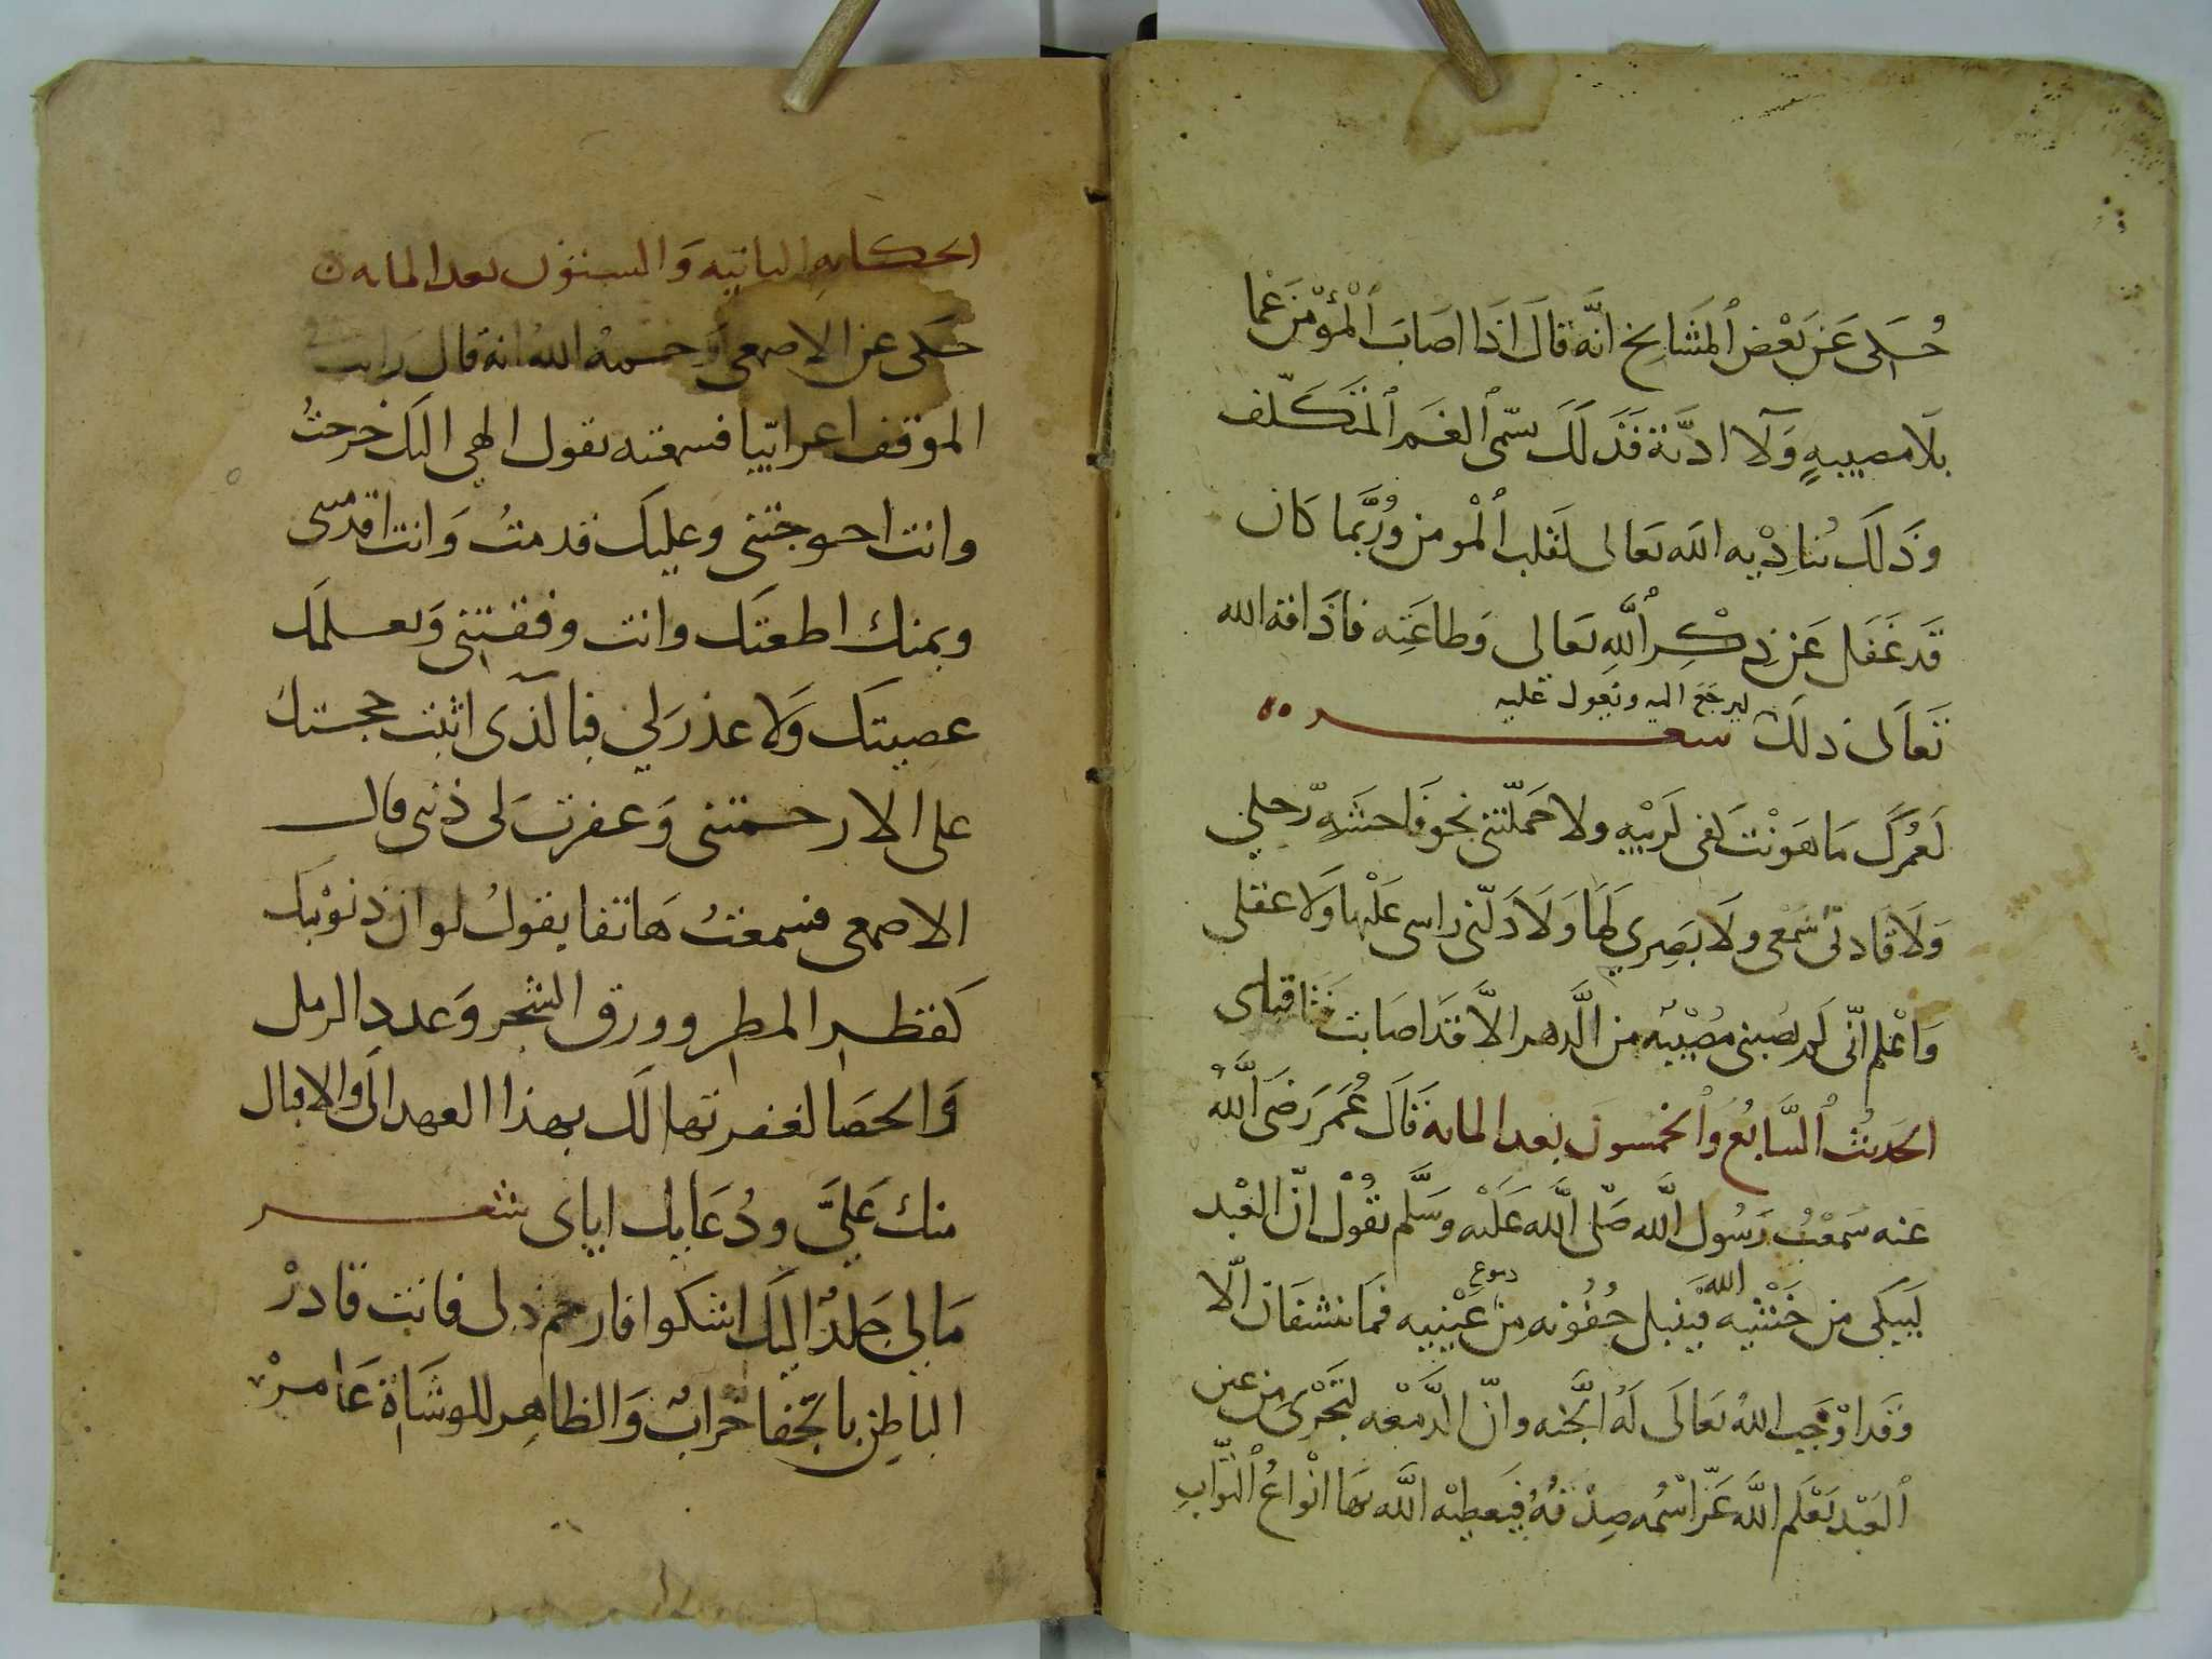 حُكى عَن بَعْض ٱلمَشَايخ انَّه قالَ اذَا اصَابَ ٱلْمؤْمنَ غما
بلَا مصيبهٍ وَلَآ اذيّة فَذَلَكَ سمّى ٱلغَمر ٱلمتَكلّف
وذَلكَ يُنادِيْ به الله تعَالى لقلب ٱلْمومن ورُبَّما كَان
قَد غَفَل عَن ذِكْرِ ٱللهِ تعَالى وَطاعَتِه فاذَاقه الله
تَعَالى ذلكَ ليرجعَ اليه ويقول عليه شعر
لَعَمُركَ مَا هَوَنْت كفى لرَيْبهٍ ولا حَمَلّتنى نحو فَاحشَهِ رّجلي
وَلَا قَادنى سَمْعى ولَا بَصَرِي لهَا وَلَا دَلّنى راسى عَلَيْها وَلَا عقلى
وَاعْلم انّى لَم يصبنى مصُيْبه من الَّدهر الاَّ قدَ اصَابت فَتَا قبلى
الحَديثُ ٱلسَّابعُ وٱلخمْسون بعد المايه قَالَ عُمَر رَضَى ٱللَّهُ
عَنه سَمعْتُ رَسُول ٱللَّه صَلّى ٱللَّه عَلَيْه وَسَلَّم يقُوْل انّ العَبْد
لَيبَكى من خَشْيه الله فَيبَل جُفُونه من دموع عَيْنيه فمَا ينشفَان الّا
وَقَد اوْجَب اللهُ تعَالَى لَهُ الجَّنه وانّ الدَّمعْه لتَجْرى مِن عين
ٱلعَبْد يَعْلَم اللَّه عَزّ اسْمُه صِدْقهُ فيَعطِيْه اللَّه بهَا انْواعُ ٱلثوَّاب
الحكايهِ الثانيه وَالستون بعد المايه
حكى عن الاصمعى رَحمهُ الله انه قال رَايت في
الموقف اعرابيّا فسمعته يقول الهي اليك خرجتُ
وانت احوجتنى وعليك قدمتُ وَانت اقدمتنى
وبمنك اطعتك وانت وفقتنى وَبعلمك
عصيتك وَلا عذر لي فبالذى اثبت حجتك
على الا رحمتنى وَغفرت لى ذنبى قال
الاصمعى فسمعتُ هَاتفا يقولُ لو ان ذنوْبك
كقطر المطر وورق الشجر وَعدد الرمل
وَالحصَا لغفرتها لك بهذا
منك عَليَّ ودُعَايك اياى شعر
مَا لي جَلدٌ اليك اشكوا فارحم ذلى فانت قادرْ
الباطن بالجّفا خرابٌ وَالظاهِر للوشَاة عَامرْ